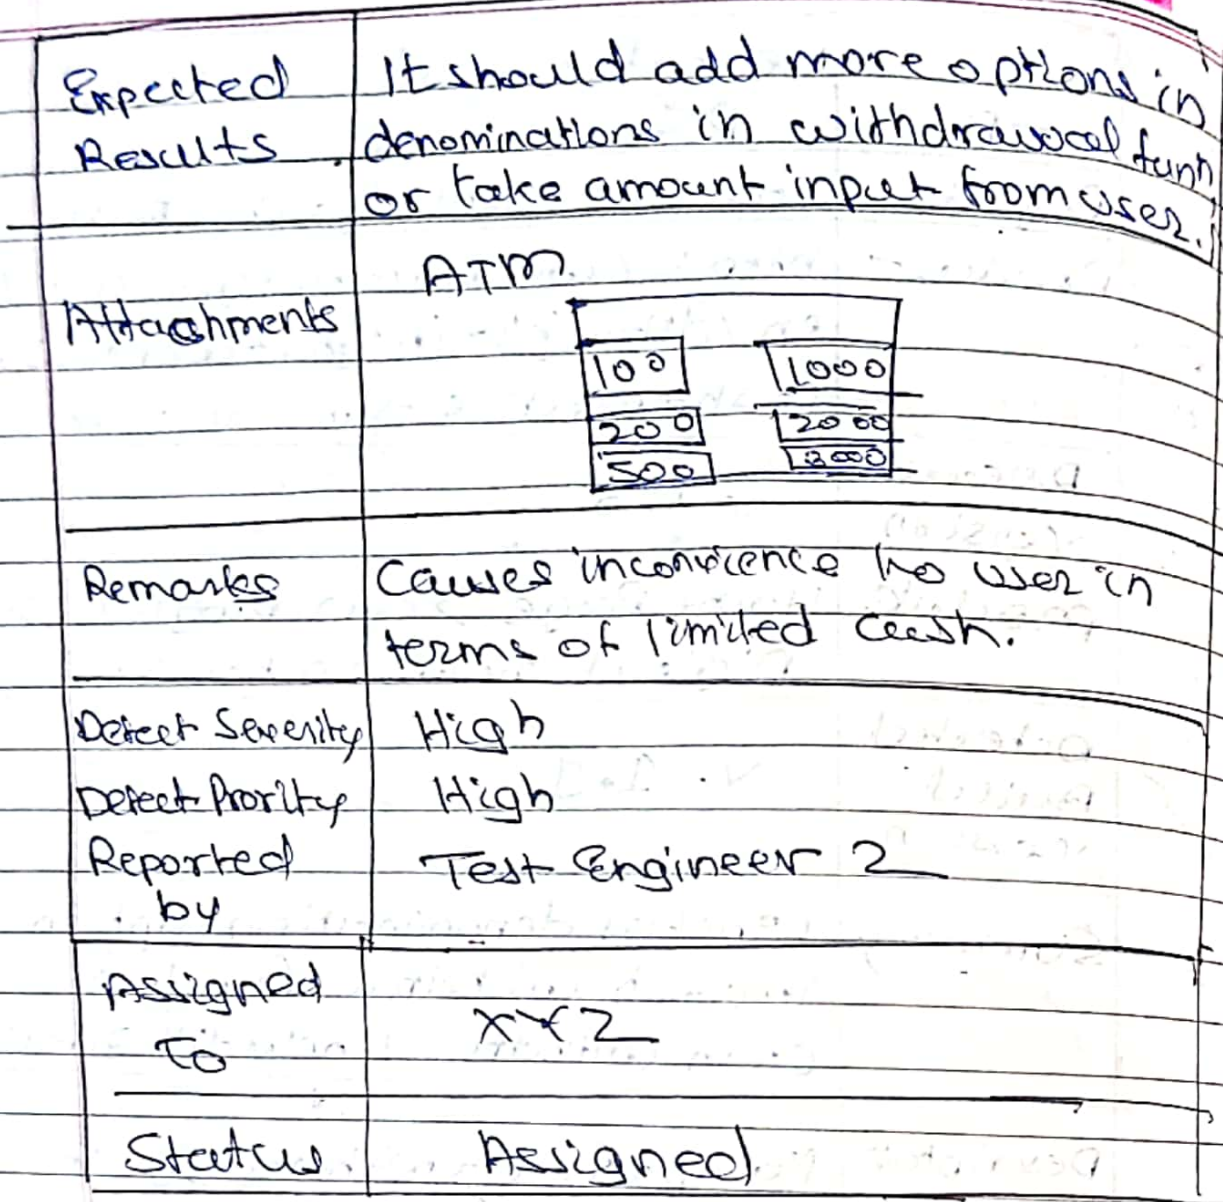 Expected
Results
It should add more options in
denominations in withdrawal funn
or take amount input from user.
Attachments
ATM
100 1000
200 2000
500 3000
Remarks
Causes inconvicence to user in
terms of limited cash.
Defect Severity High
Defect Prority High
Reported
by
Test Engineer 2
Assigned
To
XYZ
Status. Assigned